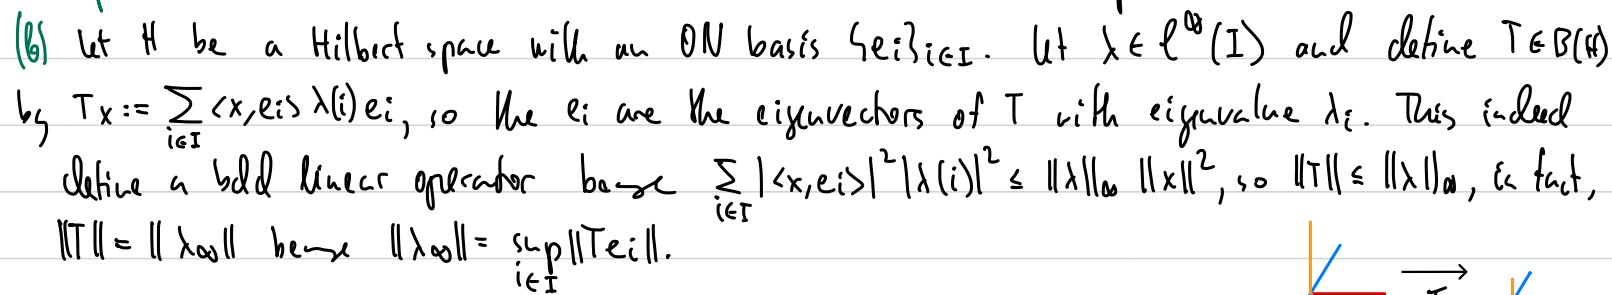 (b) Let H be a Hilbert space with an ON basis {ei}i∈I. Let λ ∈ ℓ^∞(I) and define T∈B(H)
by Tx := ∑_{i∈I} <x,ei> λ(i) ei, so the ei are the eigenvectors of T with eigenvalue λi. This indeed
define a bdd linear operator because ∑_{i∈I} |<x,ei>|² |λ(i)|² ≤ ||λ||∞ ||x||², so ||T|| ≤ ||λ||∞, in fact,
||T|| = ||λ∞|| because ||λ∞|| = sup_{i∈I} ||Tei||.